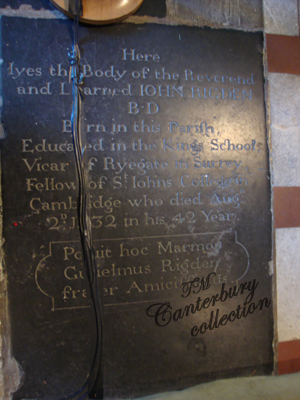 Here
lyes the Body of the Reverend
and Learned IOHN RIGDEN
B·D
Born in this Parish,
Educated in the Kings School
Vicar of Ryegate in Surrey
Fellow of St. Iohns College
Cambridge who died Aug.
2d. 1732 in his 42 Year.
Posuit hoc Marmor
Gulielmus Rigden
frater
TM
Canterbury
collection